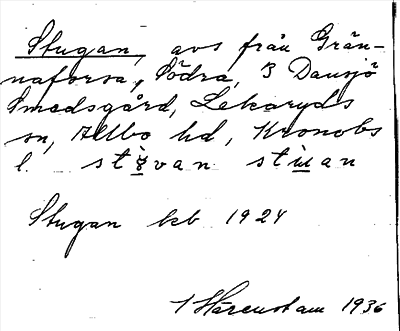 Stugan, avs från Grän-
naforsa, Södra, 3 Dansjö
Smedsgård, Lekaryds
sn, Allbo hd, Kronobs
l. stu̇van stu̇an
Stugan kb 1924
1 Härenstam 1936